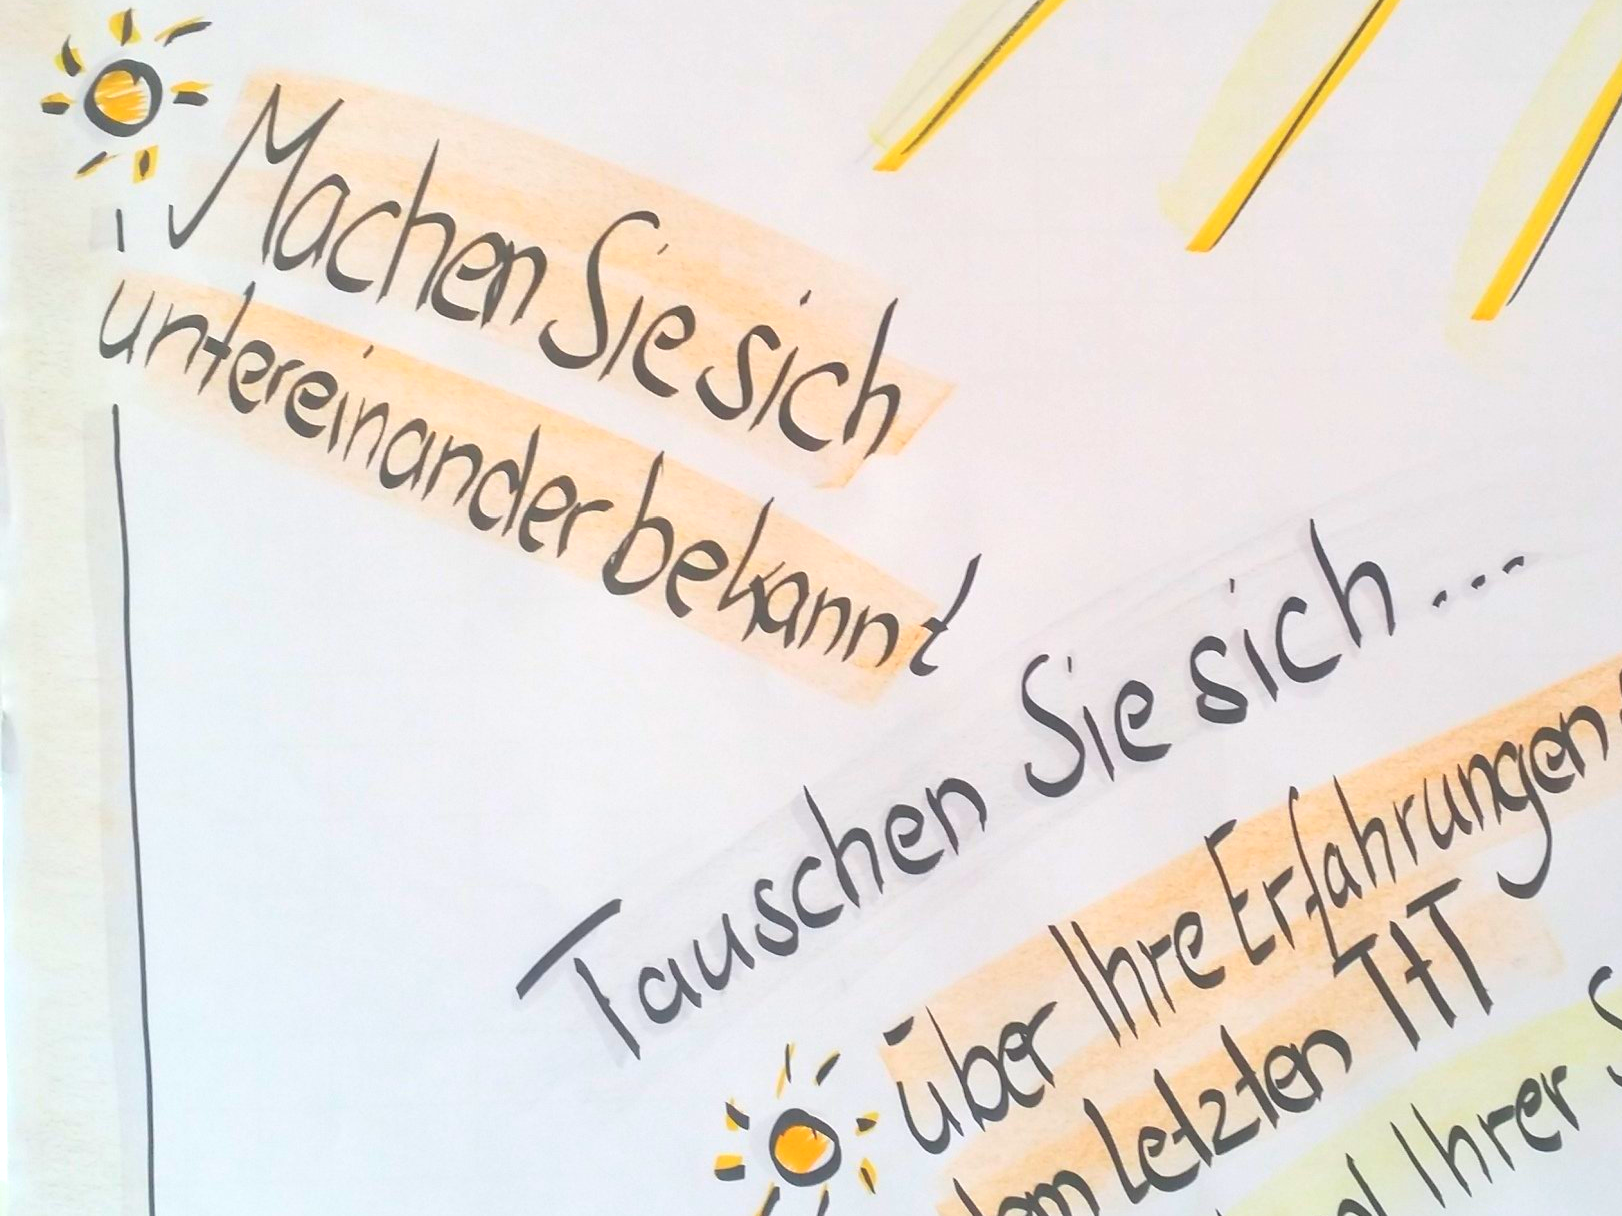 Machen Sie sich
untereinander bekannt
Tauschen Sie sich ...
über Ihre Erfahrungen
dem letzten THT
Ihrer